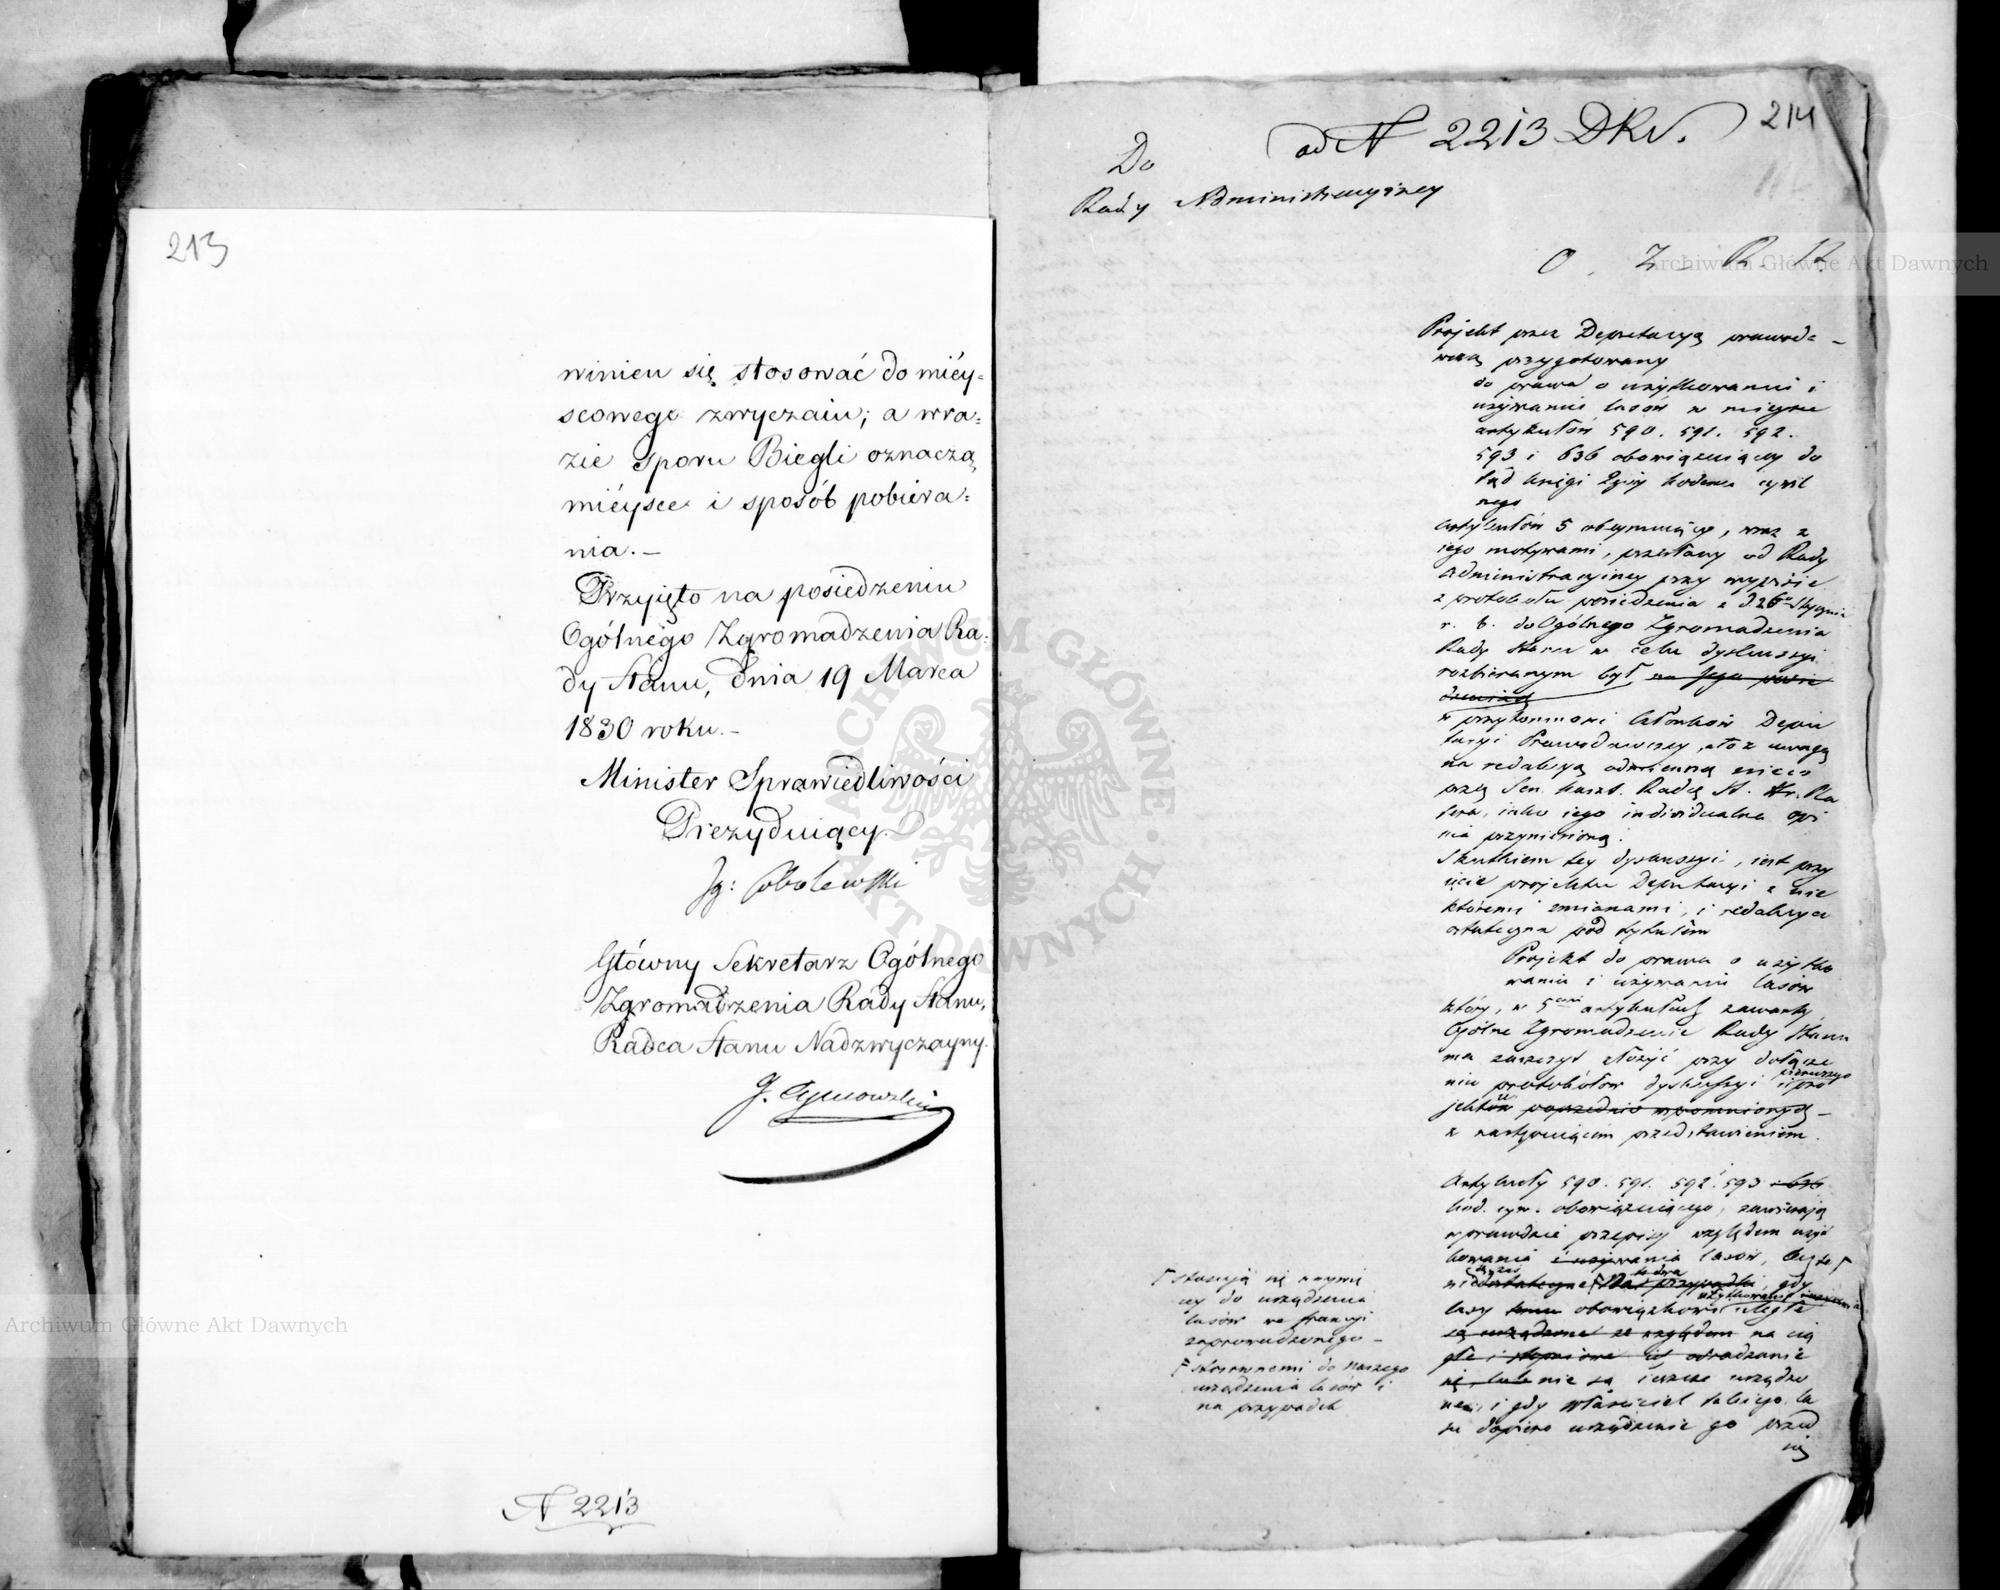 213
winien się stosować do miéy-
scowego zwyczaiu; a w ra-
zie sporu Biegli oznaczą
miéysce i sposób pobiera-
nia. —
Przyięto na posiedzeniu
Ogólnego Zgromadzenia Ra-
dy Stanu, dnia 19 Marca
1830 roku. —
Minister Sprawiedliwości
Prezyduiący.
Główny Sekretarz Ogólnego
Zgromadzenia Rady Stanu,
Radca Stanu Nadzwyczayny.
N 2213
214
ad N 2213 DKv.
Do
Rady Administracyiney
O. Z. R. S.
Projekt przez Deputacyą prawoda-
wczą przygotowany
do prawa o użytkowaniu i
używaniu lasów w mieysce
artykułów 590. 591. 592.
593 i 636 obowiązuiącey do
tąd księgi kodexu cywil
nego
artykułów 5 obeymuiący, wraz z
iego motywami, przesłany od Rady
Administracyiney przy wypisie
z protokołu posiedzenia z d 26 Stycznia
r. b. do Ogólnego Zgromadzenia
Rady Stanu w celu dyskussyi
rozbieranym był na jego posie
dzeniach
w przytomności członków Depu
tacyi Prawodawczey, a to z uwagą
na redakcyą odmienną nieco
przez Sen. Kaszt. Radcę St.
iako iego individualna opi
nia przyniesioną.
Skutkiem tey dyskussyi, iest przy
ięcie projektu Deputacyi z nie
któremi zmianami, i redakcya
ostateczna pod tytułem
Projekt do prawa o użytko
waniu i używaniu lasów
który, w 5ciu artykułach zawarty,
Ogólne Zgromadzenie Rady Stanu
ma zaszczyt złożyć przy dołącze
niu protokółów dyskussyi i pro
pierwszego
jektów poprzednio wspomnionych —
z następuiącem przedstawieniem.
Artykuły 590. 591. 592. 593 i 636
kod. cyw. obowiązuiącego, zawieraią
wprawdzie przepisy względem użyt
kowania i używania lasów, lecz te
niedostateczne na przypadki gdy
lasy temu obowiązkowi uległe
są urządzone ze względem na cią
głe i stopniowe ich odradzanie
się, lub nie są ieszcze urządzo
ne, i gdy właściciel takiego la
su dopiero urządzenie go przed
się
stosuią się naywię
cey do urządzenia
lasów we Francyi
zaprowadzonego —
stosownemi do naszego
urządzenia lasów i
na przypadek
Archiwum Główne Akt Dawnych
Archiwum Główne Akt Dawnych
ARCHIWUM GŁÓWNE AKT DAWNYCH